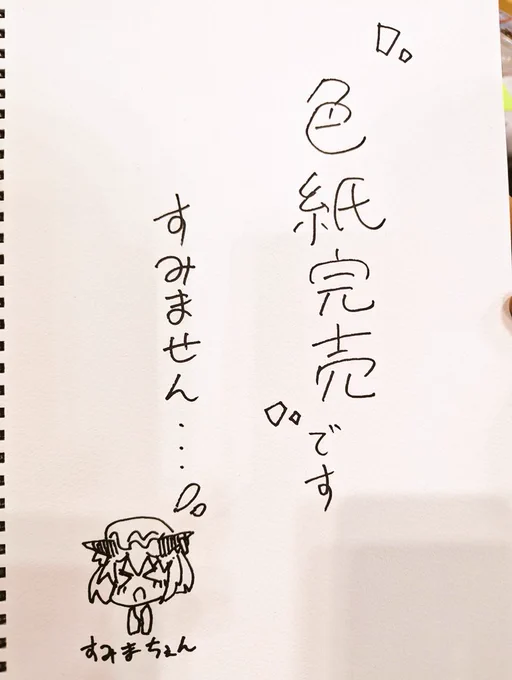 色紙完売です
すみません…
すみまちぇん